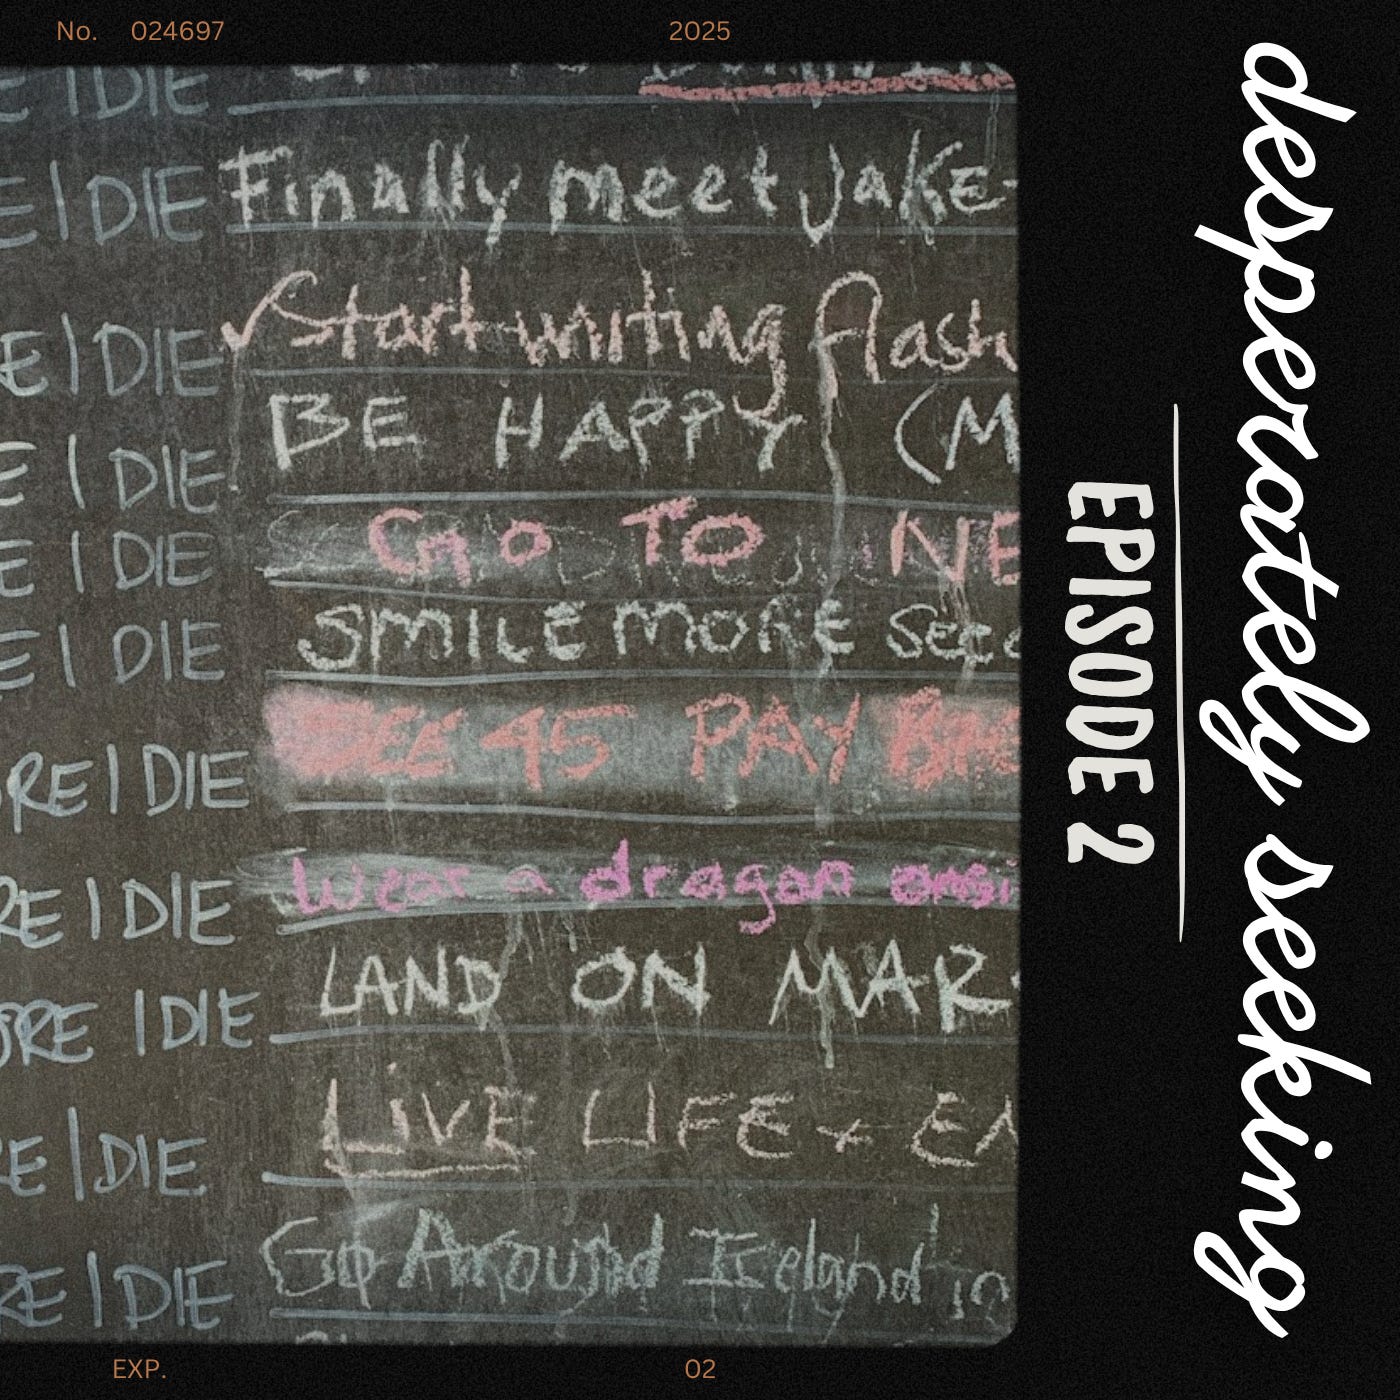 No. 024697 2025
E I DIE
E I DIE Finally meet Jake
E I DIE Start writing flash
E I DIE BE HAPPY (M
E I DIE Go TO NE
E I DIE SMILE MORE See
RE I DIE SEE 45 PAY
RE I DIE Wear a dragon onsi
ORE I DIE LAND ON MAR
RE I DIE LiVE LIFE + EN
RE I DIE Go Around Ireland in
EXP. 02
EPISODE 2
desperately seeking